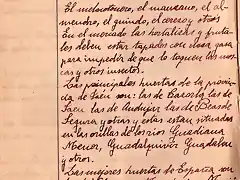 El melocotonero, el manzano, el al-
mendro, el guindo, el cerezo y otros
En el mercado las hortalizas y fruta-
les deben estar tapados con clases gasa
para impedir de que lo toquen las mos-
cas y otros insectos.
Las principales huertas de la provin-
cia de Jaén son: las de Cazorla, las de
Jaén las de Andujar las de Beas de
Segura y otras y estas están situadas
en las orillas de los ríos Guadiana
Menor, Guadalquivir Guadalen
y otros.
Las mejores huertas de España son